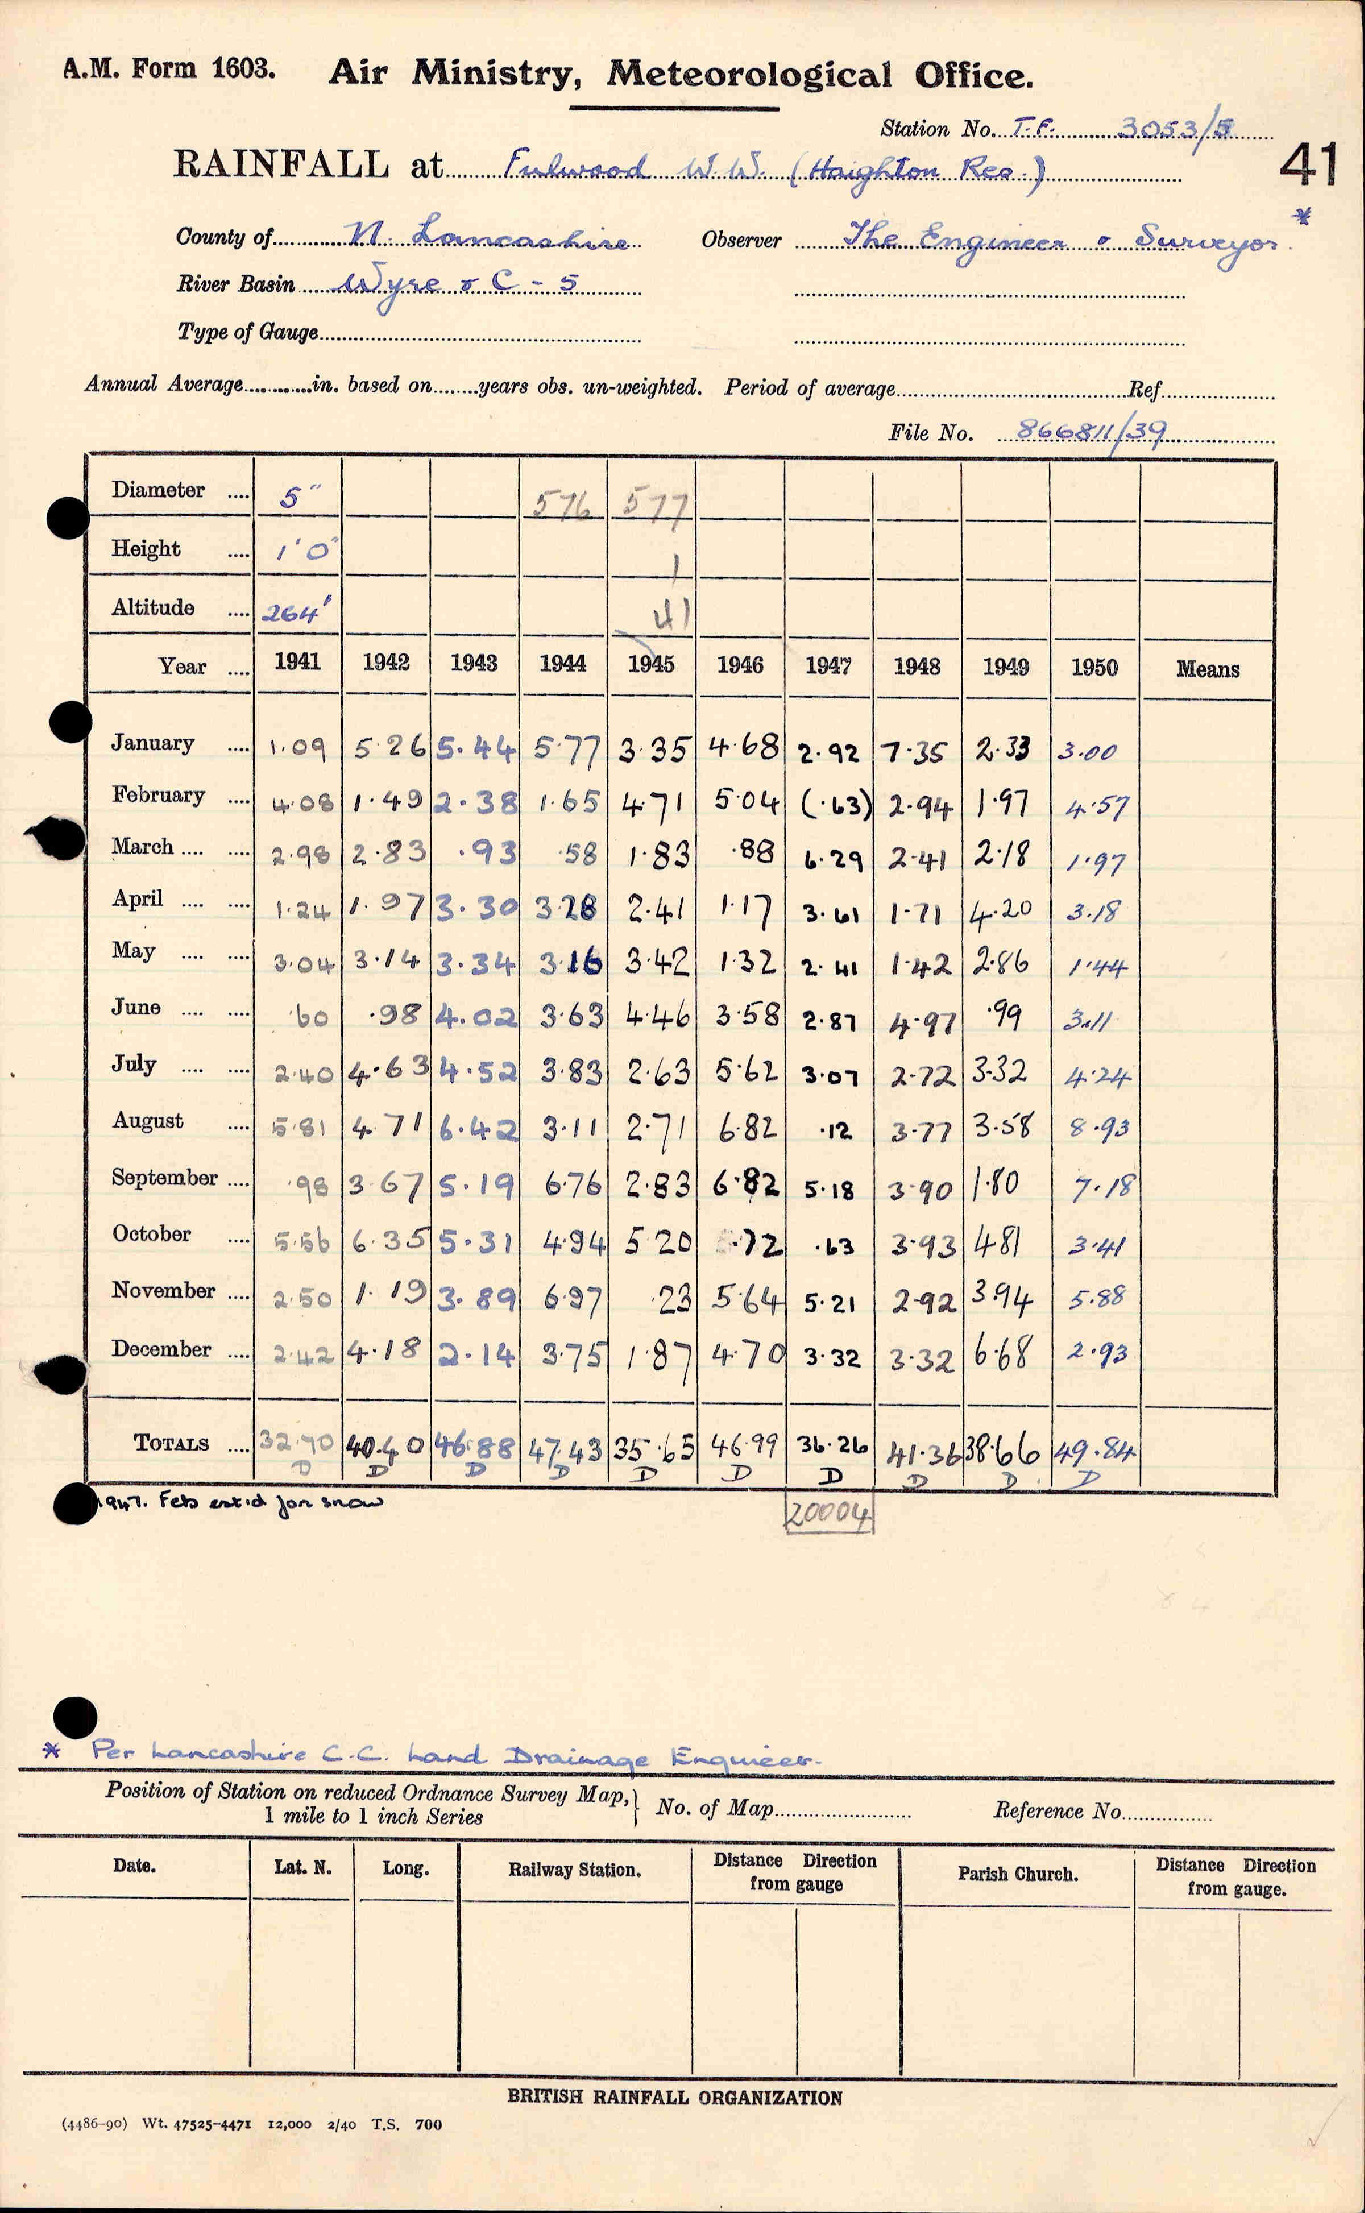 A.M. Form 1603. Air Ministry, Meteorological Office.
Station No. T.F. 3053/5
RAINFALL at Fulwood W.W. (Haighton Res.) 41
County of N. Lancashire Observer The Engineer & Surveyor *
River Basin Wyre & C - 5
Type of Gauge
Annual Average in. based on years obs. un-weighted. Period of average Ref
File No. 866811/39
Diameter .... 5" 576 577
Height .... 1'0" 1
Altitude .... 264' 41
Year .... 1941 1942 1943 1944 1945 1946 1947 1948 1949 1950 Means
January .... 1.09 5.26 5.44 5.77 3.35 4.68 2.92 7.35 2.33 3.00
February .... 4.08 1.49 2.38 1.65 4.71 5.04 (.63) 2.94 1.97 4.57
March .... .... 2.98 2.83 .93 .58 1.83 .88 6.29 2.41 2.18 1.97
April .... .... 1.24 1.97 3.30 3.28 2.41 1.17 3.61 1.71 4.20 3.18
May .... .... 3.04 3.14 3.34 3.16 3.42 1.32 2.41 1.42 2.86 1.44
June .... .... .60 .98 4.02 3.63 4.46 3.58 2.87 4.97 .99 3.11
July .... .... 2.40 4.63 4.52 3.83 2.63 5.62 3.07 2.72 3.32 4.24
August .... 5.81 4.71 6.42 3.11 2.71 6.82 .12 3.77 3.58 8.93
September .... .98 3.67 5.19 6.76 2.83 6.82 5.18 3.90 1.80 7.18
October .... 5.56 6.35 5.31 4.94 5.20 .72 .63 3.93 4.81 3.41
November .... 2.50 1.19 3.89 6.97 .23 5.64 5.21 2.92 3.94 5.88
December .... 2.42 4.18 2.14 3.75 1.87 4.70 3.32 3.32 6.68 2.93
TOTALS .... 32.70 40.40 46.88 47.43 35.65 46.99 36.26 41.36 38.66 49.84
D D D D D D D D D D
1947. Feb est'd for snow 20004
* Per Lancashire C.C. Land Drainage Engineer.
Position of Station on reduced Ordnance Survey Map, } No. of Map Reference No.
1 mile to 1 inch Series
Date. Lat. N. Long. Railway Station. Distance Direction from gauge Parish Church. Distance Direction from gauge.
BRITISH RAINFALL ORGANIZATION
(4486-90) Wt. 47525-4471 12,000 2/40 T.S. 700